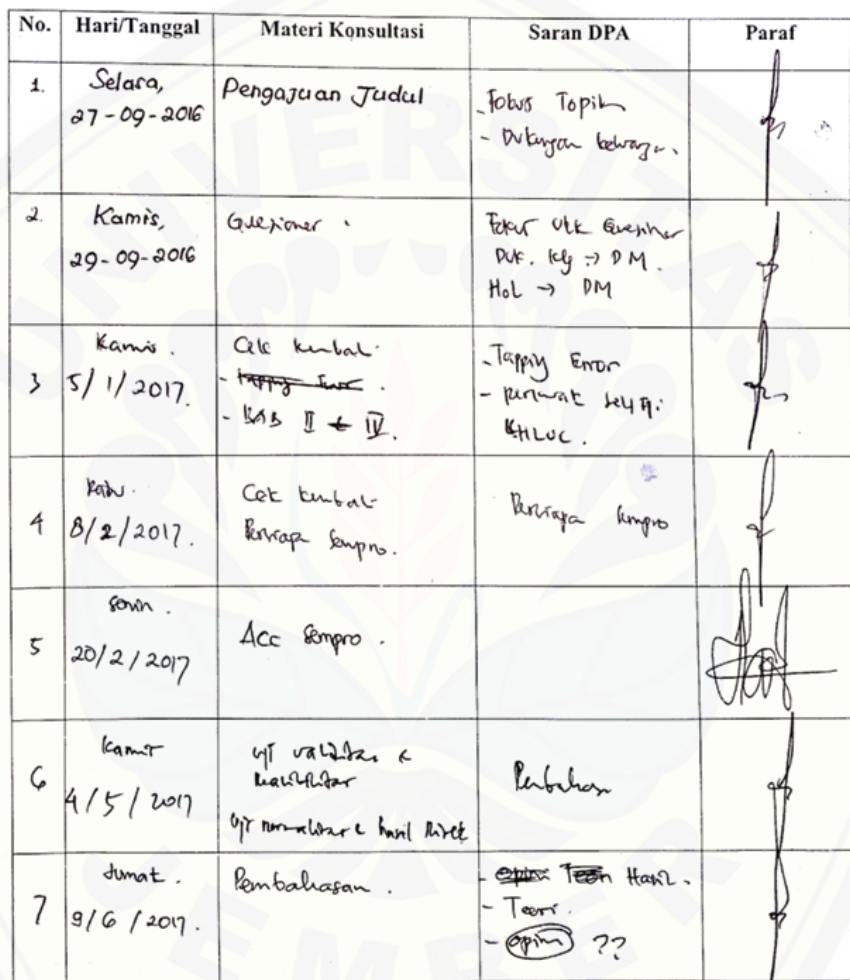 No. Hari/Tanggal Materi Konsultasi Saran DPA Paraf
1. Selasa, 27-09-2016
Pengajuan Judul
- Fokus Topik
- Dukungan keluarga.
2. Kamis,
29-09-2016
Quesioner.
Fokus utk Quesioner
Duk. klg → DM.
HoL → DM
3 Kamis.
5/1/2017.
Cek kembali
- Tapping Error.
- BAB II & IV.
- Tapping Error
- perawat
4 Rabu.
8/2/2017.
Cek kembali
Persiapan Sempro.
Persiapan Sempro
5 Senin.
20/2/2017
Acc Sempro.
6 Kamis
4/5/2017
Uji validitas &
Reabilitas
Uji normalitas & hasil Riset
Pembahasan
7 Jumat.
9/6/2017.
Pembahasan.
- Opini Teori Hasil.
- Teori.
- Opini ??
UNIVERSITAS
JEMBER